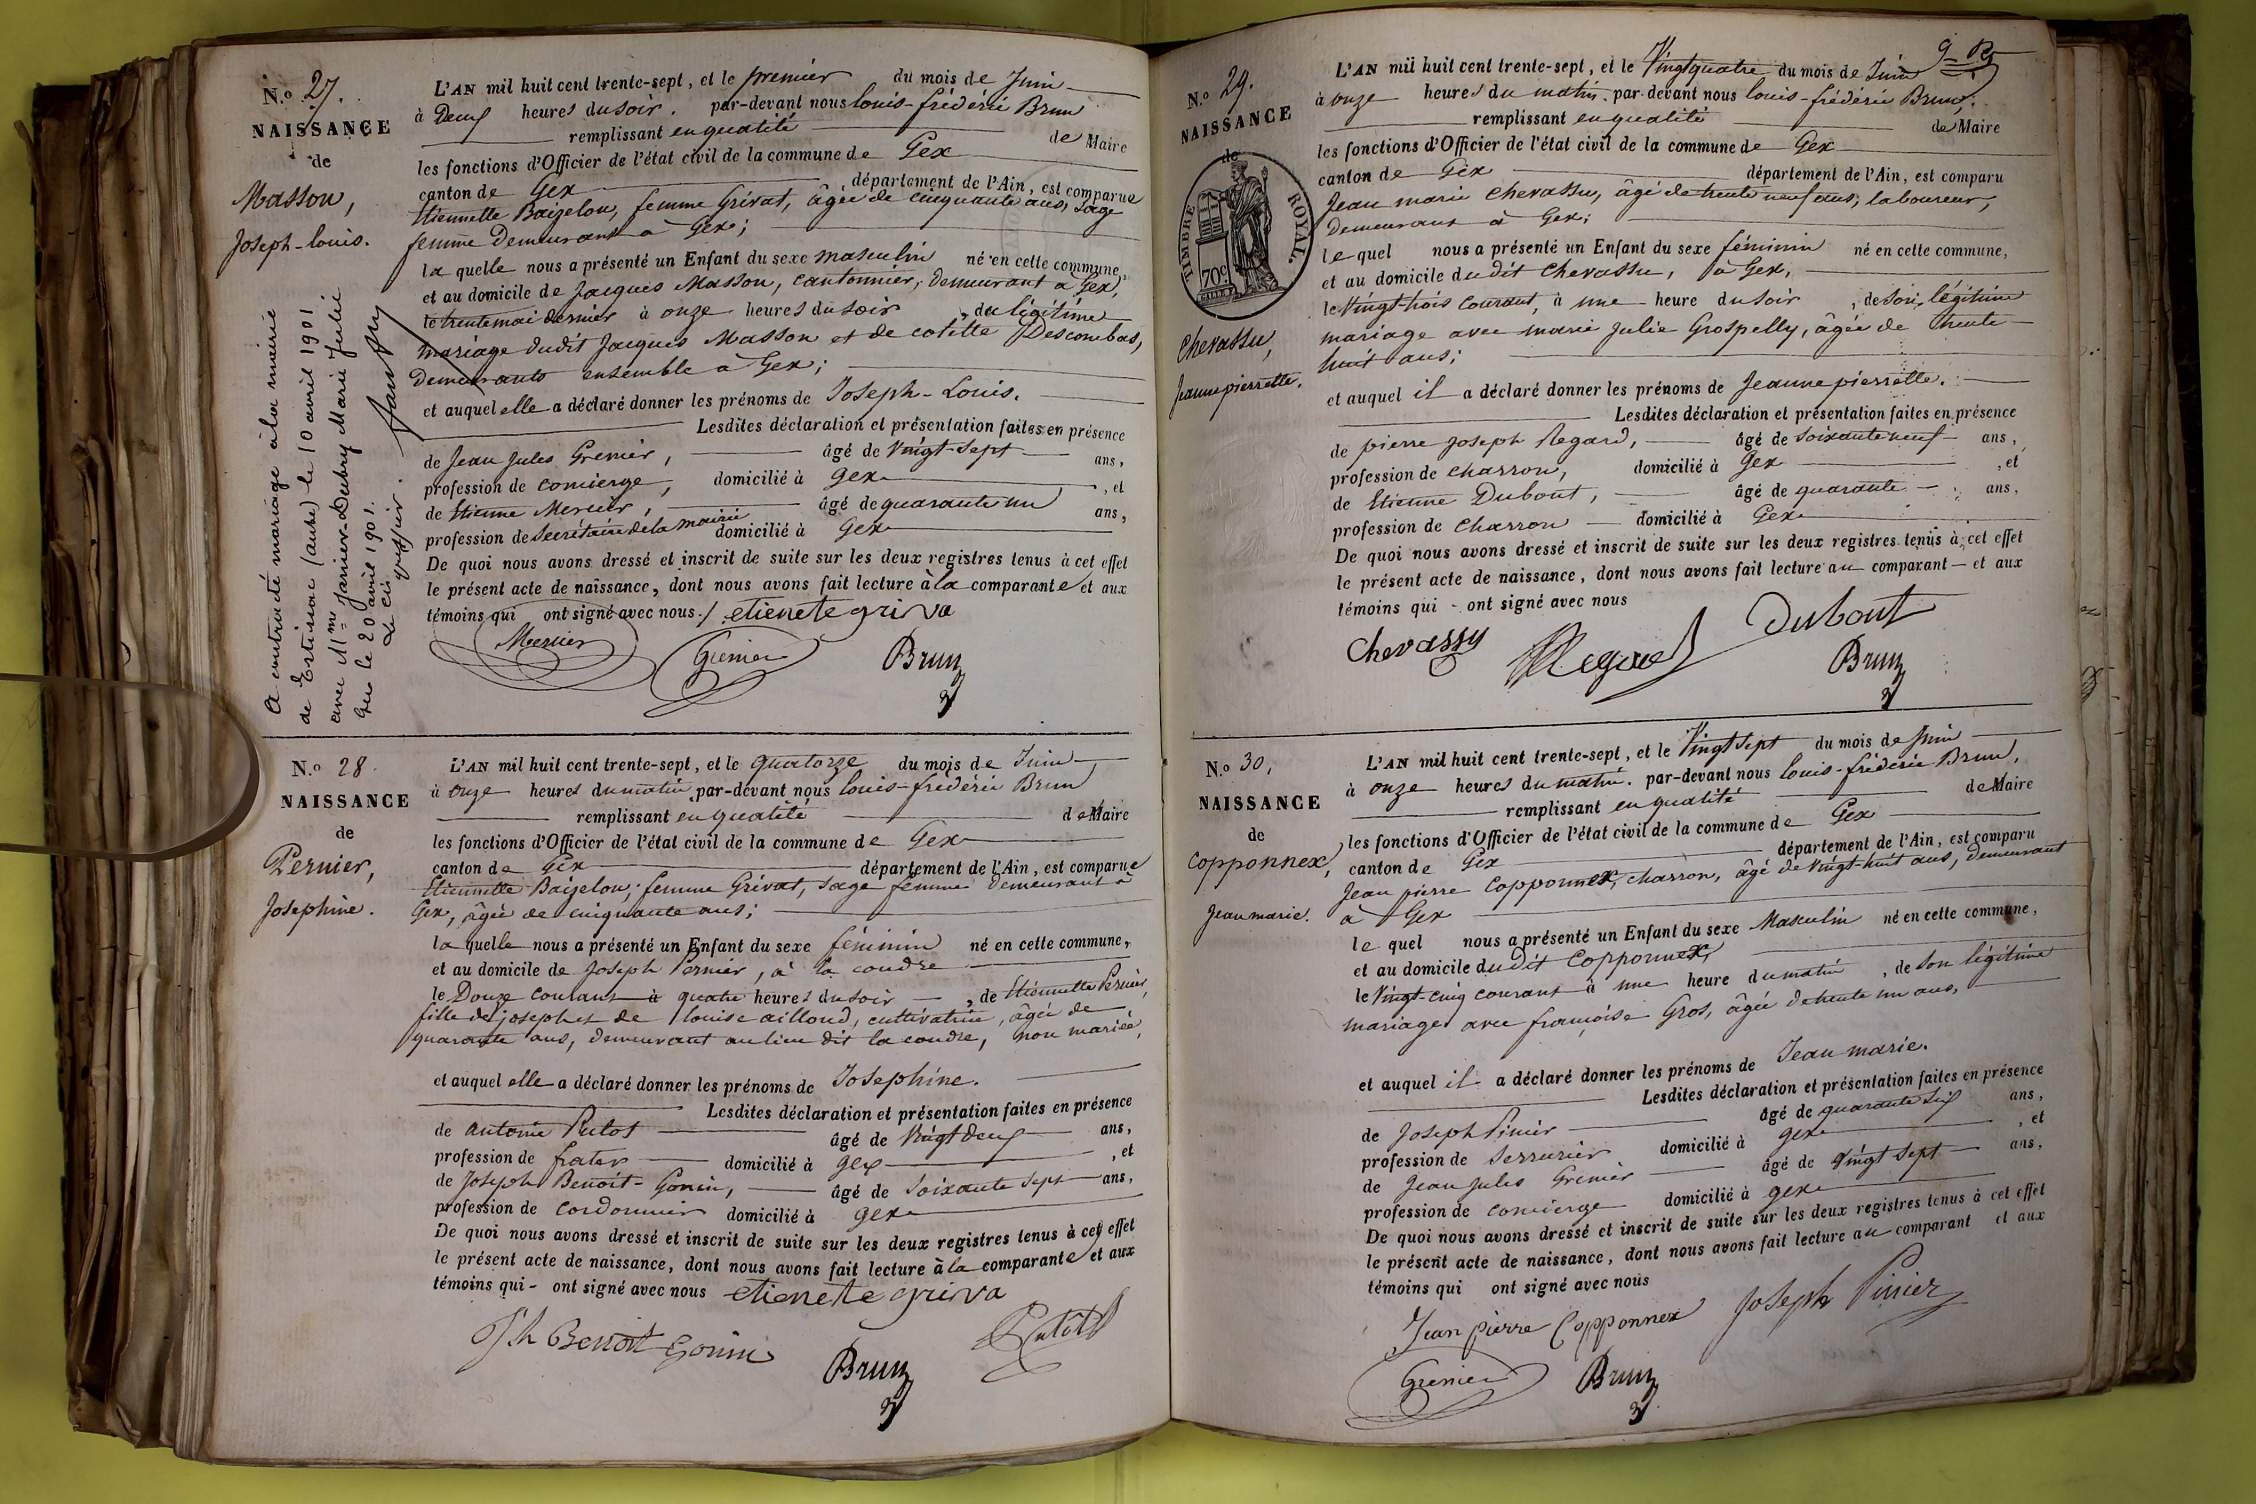 N.o 27.
NAISSANCE
de
Masson,
Joseph-louis.
A contracté mariage à la mairie
de Estissac (aube) le 10 avril 1901
avec Mme Janiner-Dubry Marie Julie
Gex le 20 avril 1901.
Le Greffier.
L'AN mil huit cent trente-sept, et le premier du mois de Juin
à Deux heures du soir. par-devant nous louis-frédéric Brun
remplissant en qualité de Maire
les fonctions d'Officier de l'état civil de la commune de Gex
canton de Gex département de l'Ain, est comparue
Etiennette Baizelon, femme Grivat, âgée de cinquante ans, sage
femme Demeurant à Gex;
la quelle nous a présenté un Enfant du sexe masculin né en cette commune,
et au domicile de Jacques Masson, cantonnier, demeurant à Gex,
le trente mai dernier à onze heures du soir, du légitime
mariage dudit Jacques Masson et de Colette Descombas,
demeurants ensemble à Gex;
et auquel elle a déclaré donner les prénoms de Joseph-Louis.
Lesdites déclaration et présentation faites en présence
de Jean Jules Grenier, âgé de vingt-sept ans,
profession de concierge, domicilié à Gex, et
de Etienne Mercier, âgé de quarante un ans,
profession de Secrétaire de la mairie domicilié à Gex
De quoi nous avons dressé et inscrit de suite sur les deux registres tenus à cet effet
le présent acte de naissance, dont nous avons fait lecture à la comparante et aux
témoins qui ont signé avec nous./ etienete griva
Mercier Grenier Brun
N.o 28.
NAISSANCE
de
Pernier,
Josephine.
L'AN mil huit cent trente-sept, et le quatorze du mois de Juin
à onze heures du matin par-devant nous louis-frédéric Brun
remplissant en qualité de Maire
les fonctions d'Officier de l'état civil de la commune de Gex
canton de Gex département de l'Ain, est comparue
Etiennette Baizelon, femme Grivat, sage femme demeurant à
Gex, âgée de cinquante ans;
la quelle nous a présenté un Enfant du sexe féminin né en cette commune,
et au domicile de Joseph Pernier, à la coudre
le Douze Courant à quatre heures du soir, de Etiennette Pernier,
fille de joseph et de louise aillond, cultivatrice, âgée de
quarante ans, demeurant au lieu dit la coudre, non mariée,
et auquel elle a déclaré donner les prénoms de Josephine.
Lesdites déclaration et présentation faites en présence
de antoine Putot âgé de Vingt deux ans,
profession de frater domicilié à gex, et
de Joseph Benoit-Gonin, âgé de soixante sept ans,
profession de cordonnier domicilié à gex
De quoi nous avons dressé et inscrit de suite sur les deux registres tenus à cet effet
le présent acte de naissance, dont nous avons fait lecture à la comparante et aux
témoins qui - ont signé avec nous etienete griva
Jh Benoit Gonin Brun Putot
N.o 29.
NAISSANCE
de
TIMBRE ROYAL.
70c
Chevassu,
Jeanne pierrette.
L'AN mil huit cent trente-sept, et le Vingt quatre du mois de Juin
à onze heures du matin. par-devant nous louis-frédéric Brun,
remplissant en qualité de Maire
les fonctions d'Officier de l'état civil de la commune de Gex
canton de Gex département de l'Ain, est comparu
Jean marie Chevassu, âgé de trente neuf ans, laboureur,
demeurant à Gex;
le quel nous a présenté un Enfant du sexe féminin né en cette commune,
et au domicile dudit Chevassu, à Gex,
le Vingt-trois Courant, à une heure du soir, de son légitime
mariage avec marie Julie Grospelly, âgée de trente
huit ans;
et auquel il a déclaré donner les prénoms de Jeanne pierrette.
Lesdites déclaration et présentation faites en présence
de pierre Joseph Regard, âgé de soixante neuf ans,
profession de charron, domicilié à Gex, et
de Etienne Dubout, âgé de quarante ans,
profession de charron domicilié à Gex
De quoi nous avons dressé et inscrit de suite sur les deux registres tenus à cet effet
le présent acte de naissance, dont nous avons fait lecture au comparant et aux
témoins qui - ont signé avec nous
Chevassu Regard Dubout
Brun
N.o 30,
NAISSANCE
de
Copponnex,
Jean marie.
L'AN mil huit cent trente-sept, et le Vingt sept du mois de Juin
à onze heures du matin. par-devant nous louis-frédéric Brun,
remplissant en qualité de Maire
les fonctions d'Officier de l'état civil de la commune de Gex
canton de Gex département de l'Ain, est comparu
Jean pierre Copponnex, charron, âgé de vingt-huit ans, demeurant
à Gex
le quel nous a présenté un Enfant du sexe Masculin né en cette commune,
et au domicile dudit Copponnex,
le Vingt-cinq courant à une heure du matin, de son légitime
mariage avec françoise Gros, âgée de trente un ans,
et auquel il a déclaré donner les prénoms de Jean marie.
Lesdites déclaration et présentation faites en présence
de Joseph Pinier âgé de quarante six ans,
profession de Serrurier domicilié à gex, et
de Jean Jules Grenier âgé de Vingt sept ans,
profession de concierge domicilié à gex
De quoi nous avons dressé et inscrit de suite sur les deux registres tenus à cet effet
le présent acte de naissance, dont nous avons fait lecture au comparant et aux
témoins qui ont signé avec nous
Jean pierre Copponnex Joseph Pinier
Grenier Brun